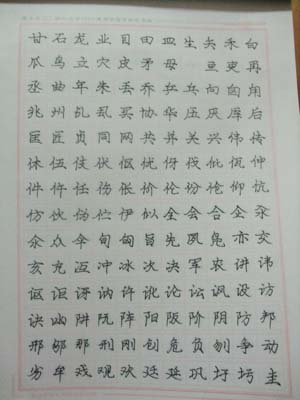 甘石龙业目田皿生矢禾白
瓜鸟立穴皮矛母再
丞曲年朱丢乔乒乓向自用
兆州乱乱买协华压灰库后
匡匠贞同网共并关兴伟传
休伍伎伏优伐仳伉仲
件任伤价伦份伧仰伉
仿伙伪伫伊似全会合企氽
氽众伞旬匈旨先夙凫亦交
亥充冱冲冰次决军农讲讳
讴讵讶讷许论讼讽设访
诀凼阱阮阵阳阪阶阴防邦
邢那刑刚创危负刎争动
劣牟戏观欢廷延巩圩圬圭